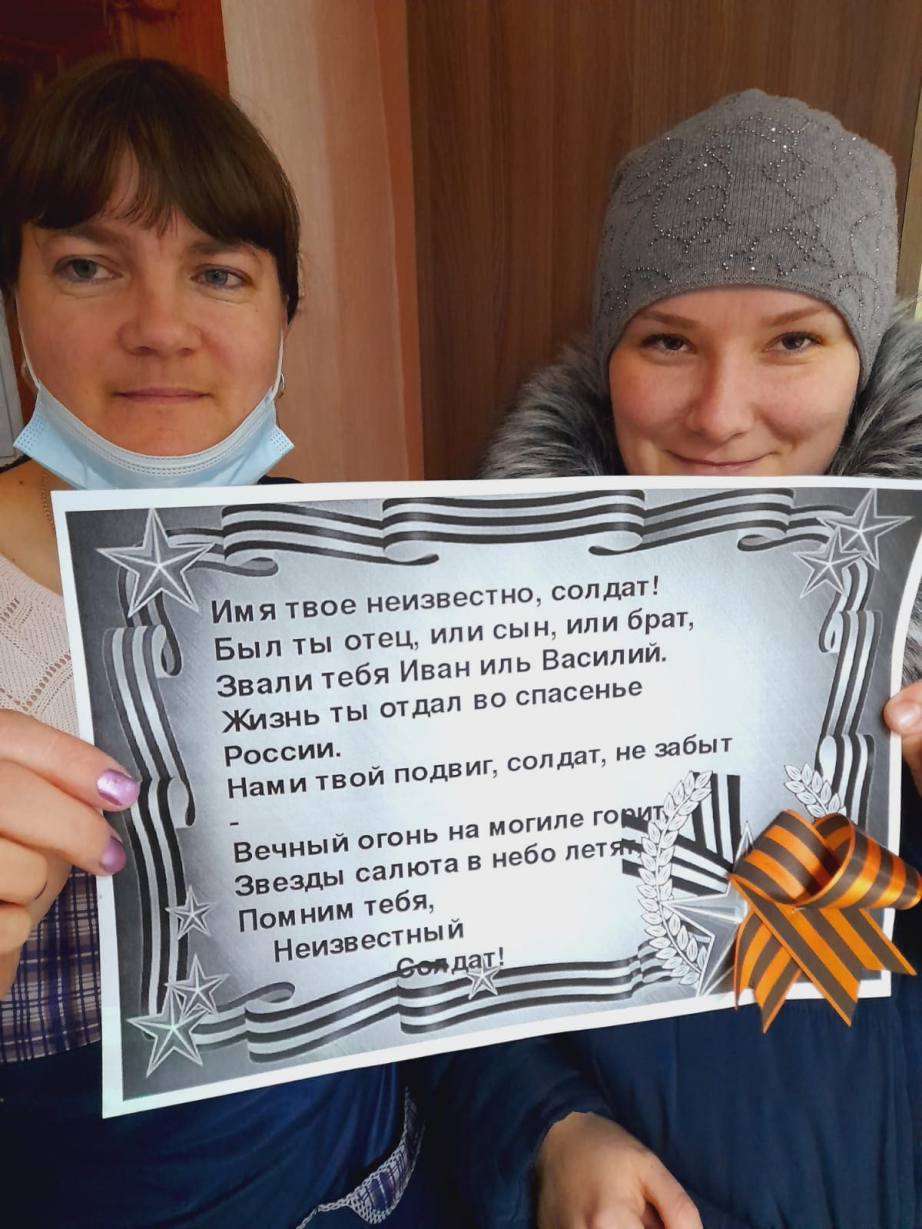 Имя твое неизвестно, солдат!
Был ты отец, или сын, или брат,
Звали тебя Иван иль Василий.
Жизнь ты отдал во спасенье
России.
Нами твой подвиг, солдат, не забыт
-
Вечный огонь на могиле горит,
Звезды салюта в небо летят,
Помним тебя,
Неизвестный
Солдат!